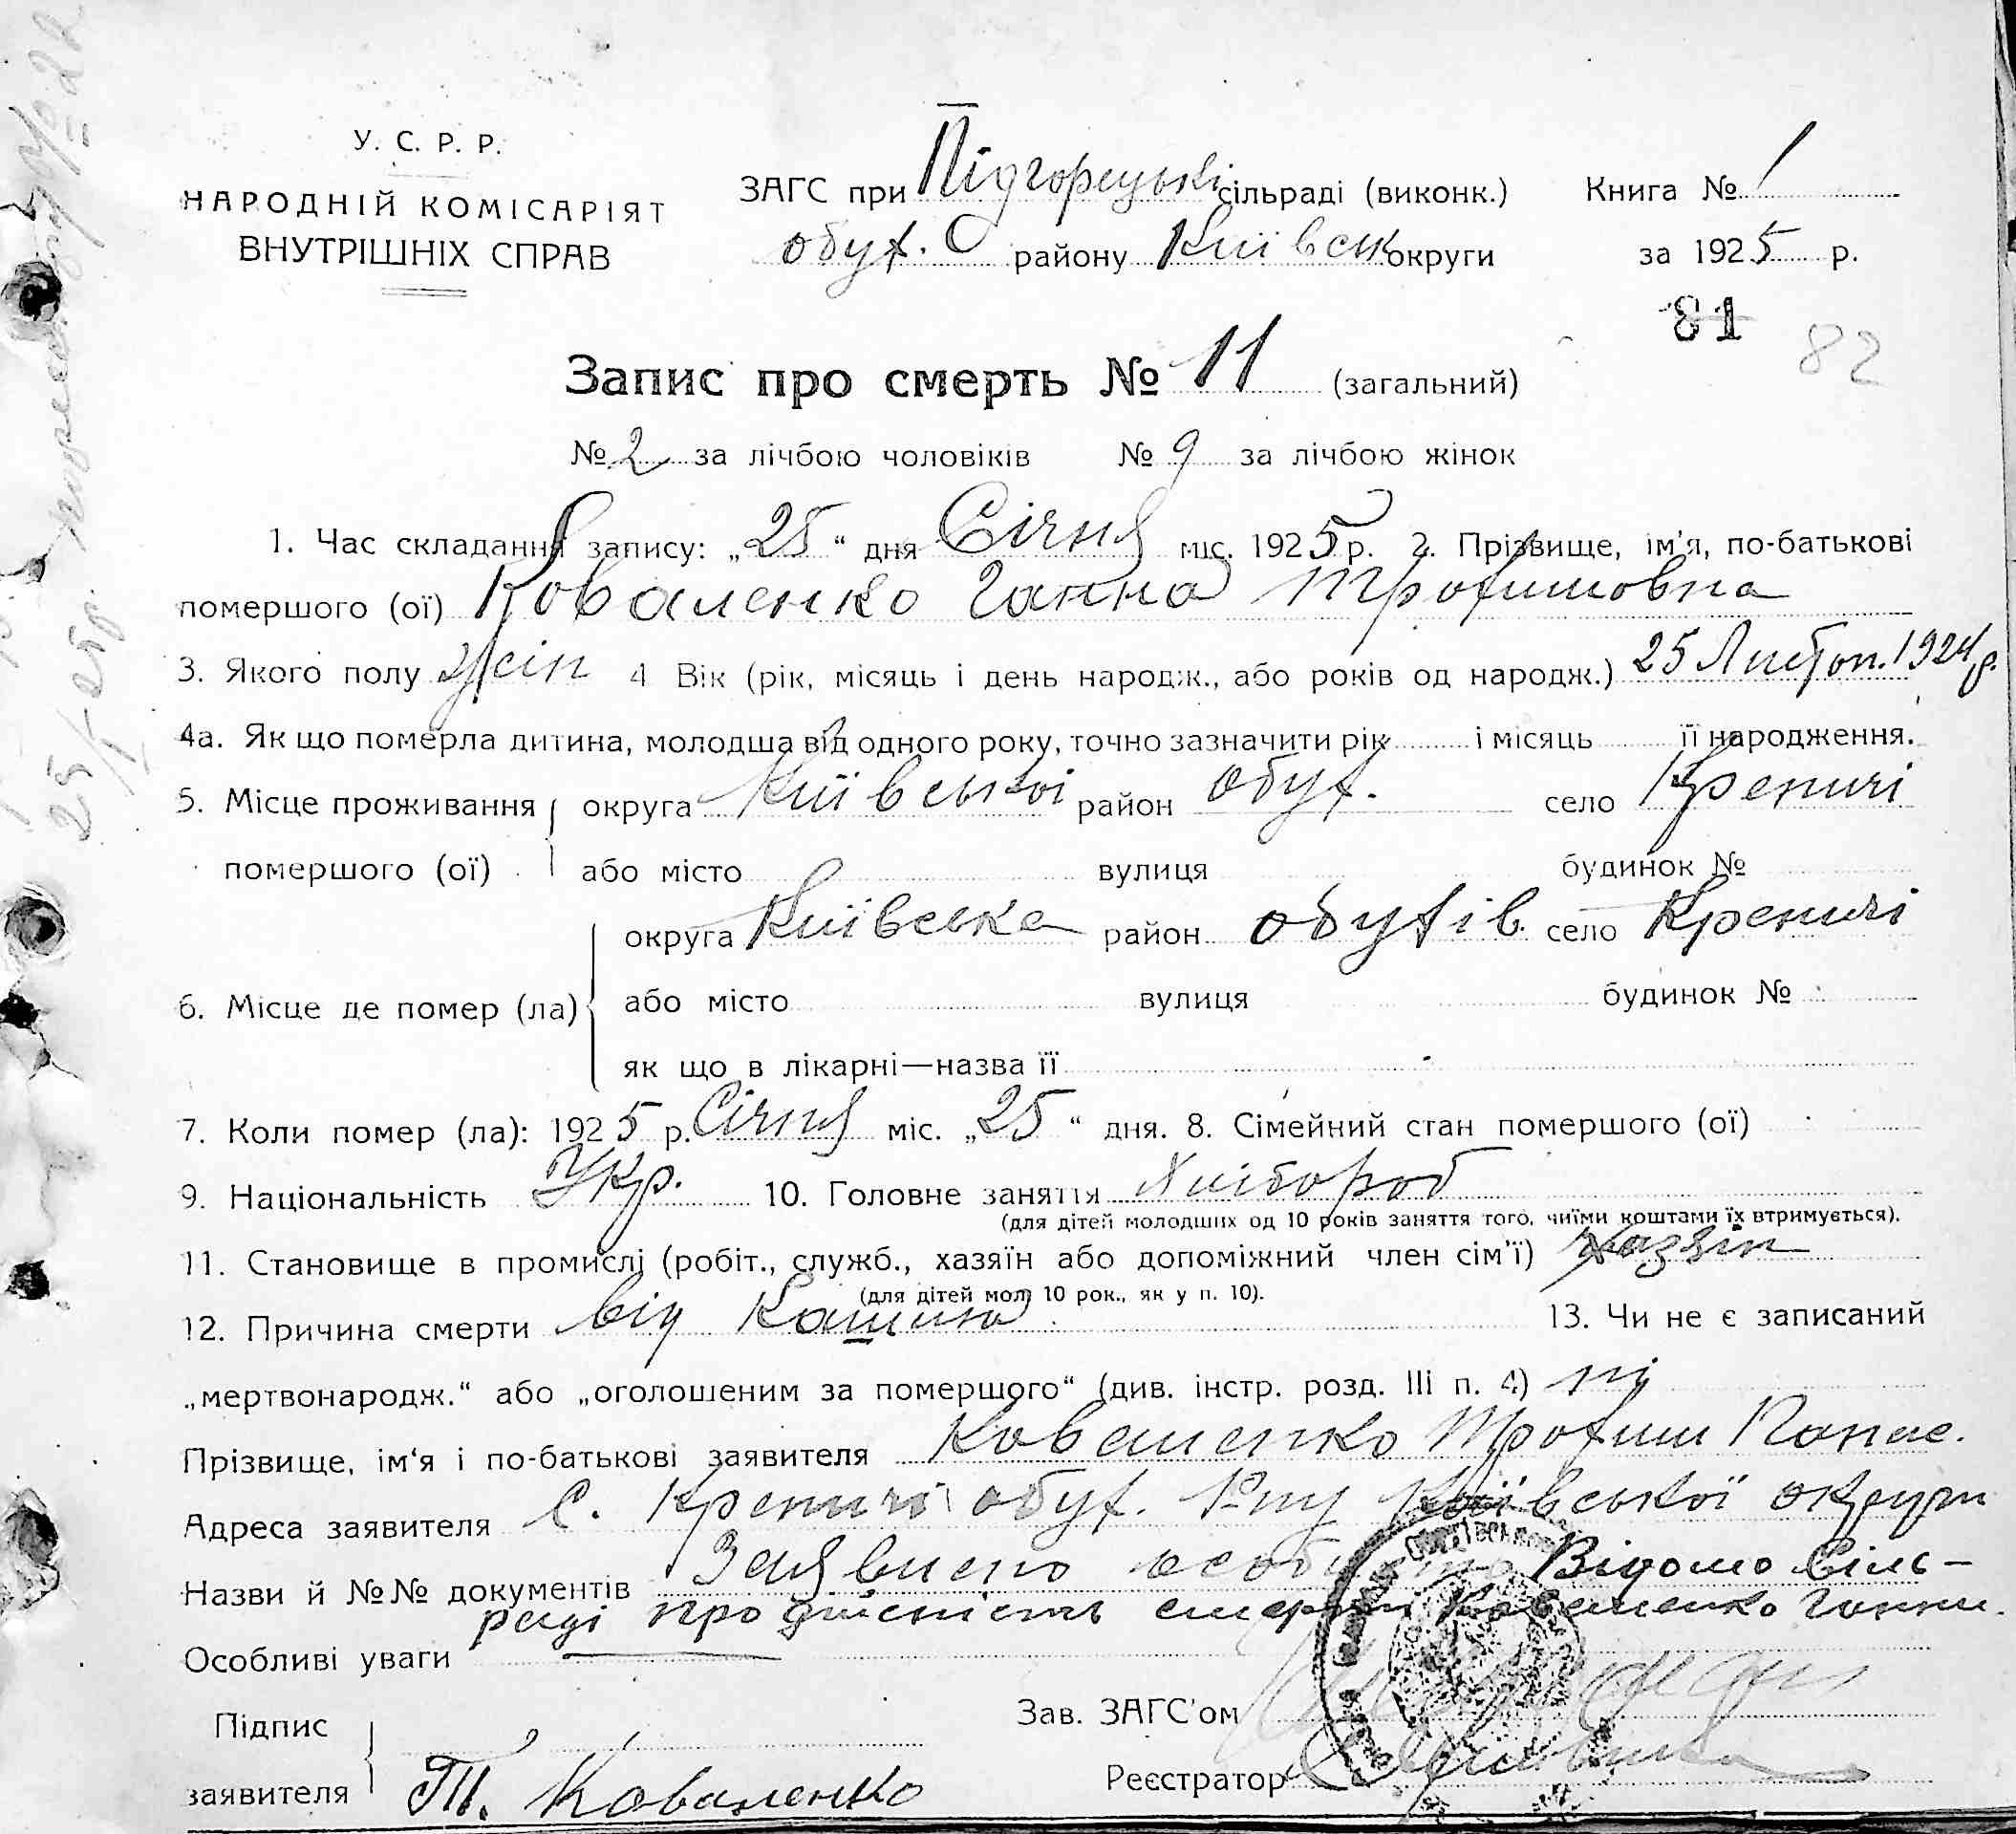 У. С. Р. Р.
НАРОДНІЙ КОМІСАРІЯТ
ВНУТРІШНІХ СПРАВ
ЗАГС при Підгорецькі сільраді (виконк.) Книга № 1
обух. району Київськ округи за 1925 р.
81 82
Запис про смерть № 11 (загальний)
№ 2 за лічбою чоловіків № 9 за лічбою жінок
1. Час складання запису: „25“ дня Січня міс. 1925 р. 2. Прізвище, ім'я, по-батькові
помершого (ої) Коваленко Ганна Трофимовна
3. Якого полу жін 4 Вік (рік, місяць і день народж., або років од народж.) 25 Листоп. 1924 р.
4а. Як що померла дитина, молодша від одного року, точно зазначити рік і місяць її народження.
5. Місце проживання округа Київської район обух. село Креничі
помершого (ої) або місто вулиця будинок №
округа Київська район обухів. село Креничі
6. Місце де помер (ла) або місто вулиця будинок №
як що в лікарні—назва її
7. Коли помер (ла): 1925 р. Січня міс. „25“ дня. 8. Сімейний стан помершого (ої)
9. Національність Укр. 10. Головне заняття Хлібороб
(для дітей молодших од 10 років заняття того, чиїми коштами їх втримується).
11. Становище в промислі (робіт., служб., хазяїн або допоміжний член сім'ї) хазяін
(для дітей мол. 10 рок., як у п. 10).
12. Причина смерти від Кашлю 13. Чи не є записаний
„мертвонародж.“ або „оголошеним за помершого“ (див. інстр. розд. III п. 4) ні
Прізвище, ім'я і по-батькові заявителя Коваленко Трофим Панас.
Адреса заявителя С. Креничі обух. Р-ну Київської округи
Назви й №№ документів Заявлено особисто Відомо сіль-
раді про дійсність смерти Коваленко Ганни.
Особливі уваги
Підпис
заявителя Т. Коваленко
Зав. ЗАГС'ом
Реєстратор